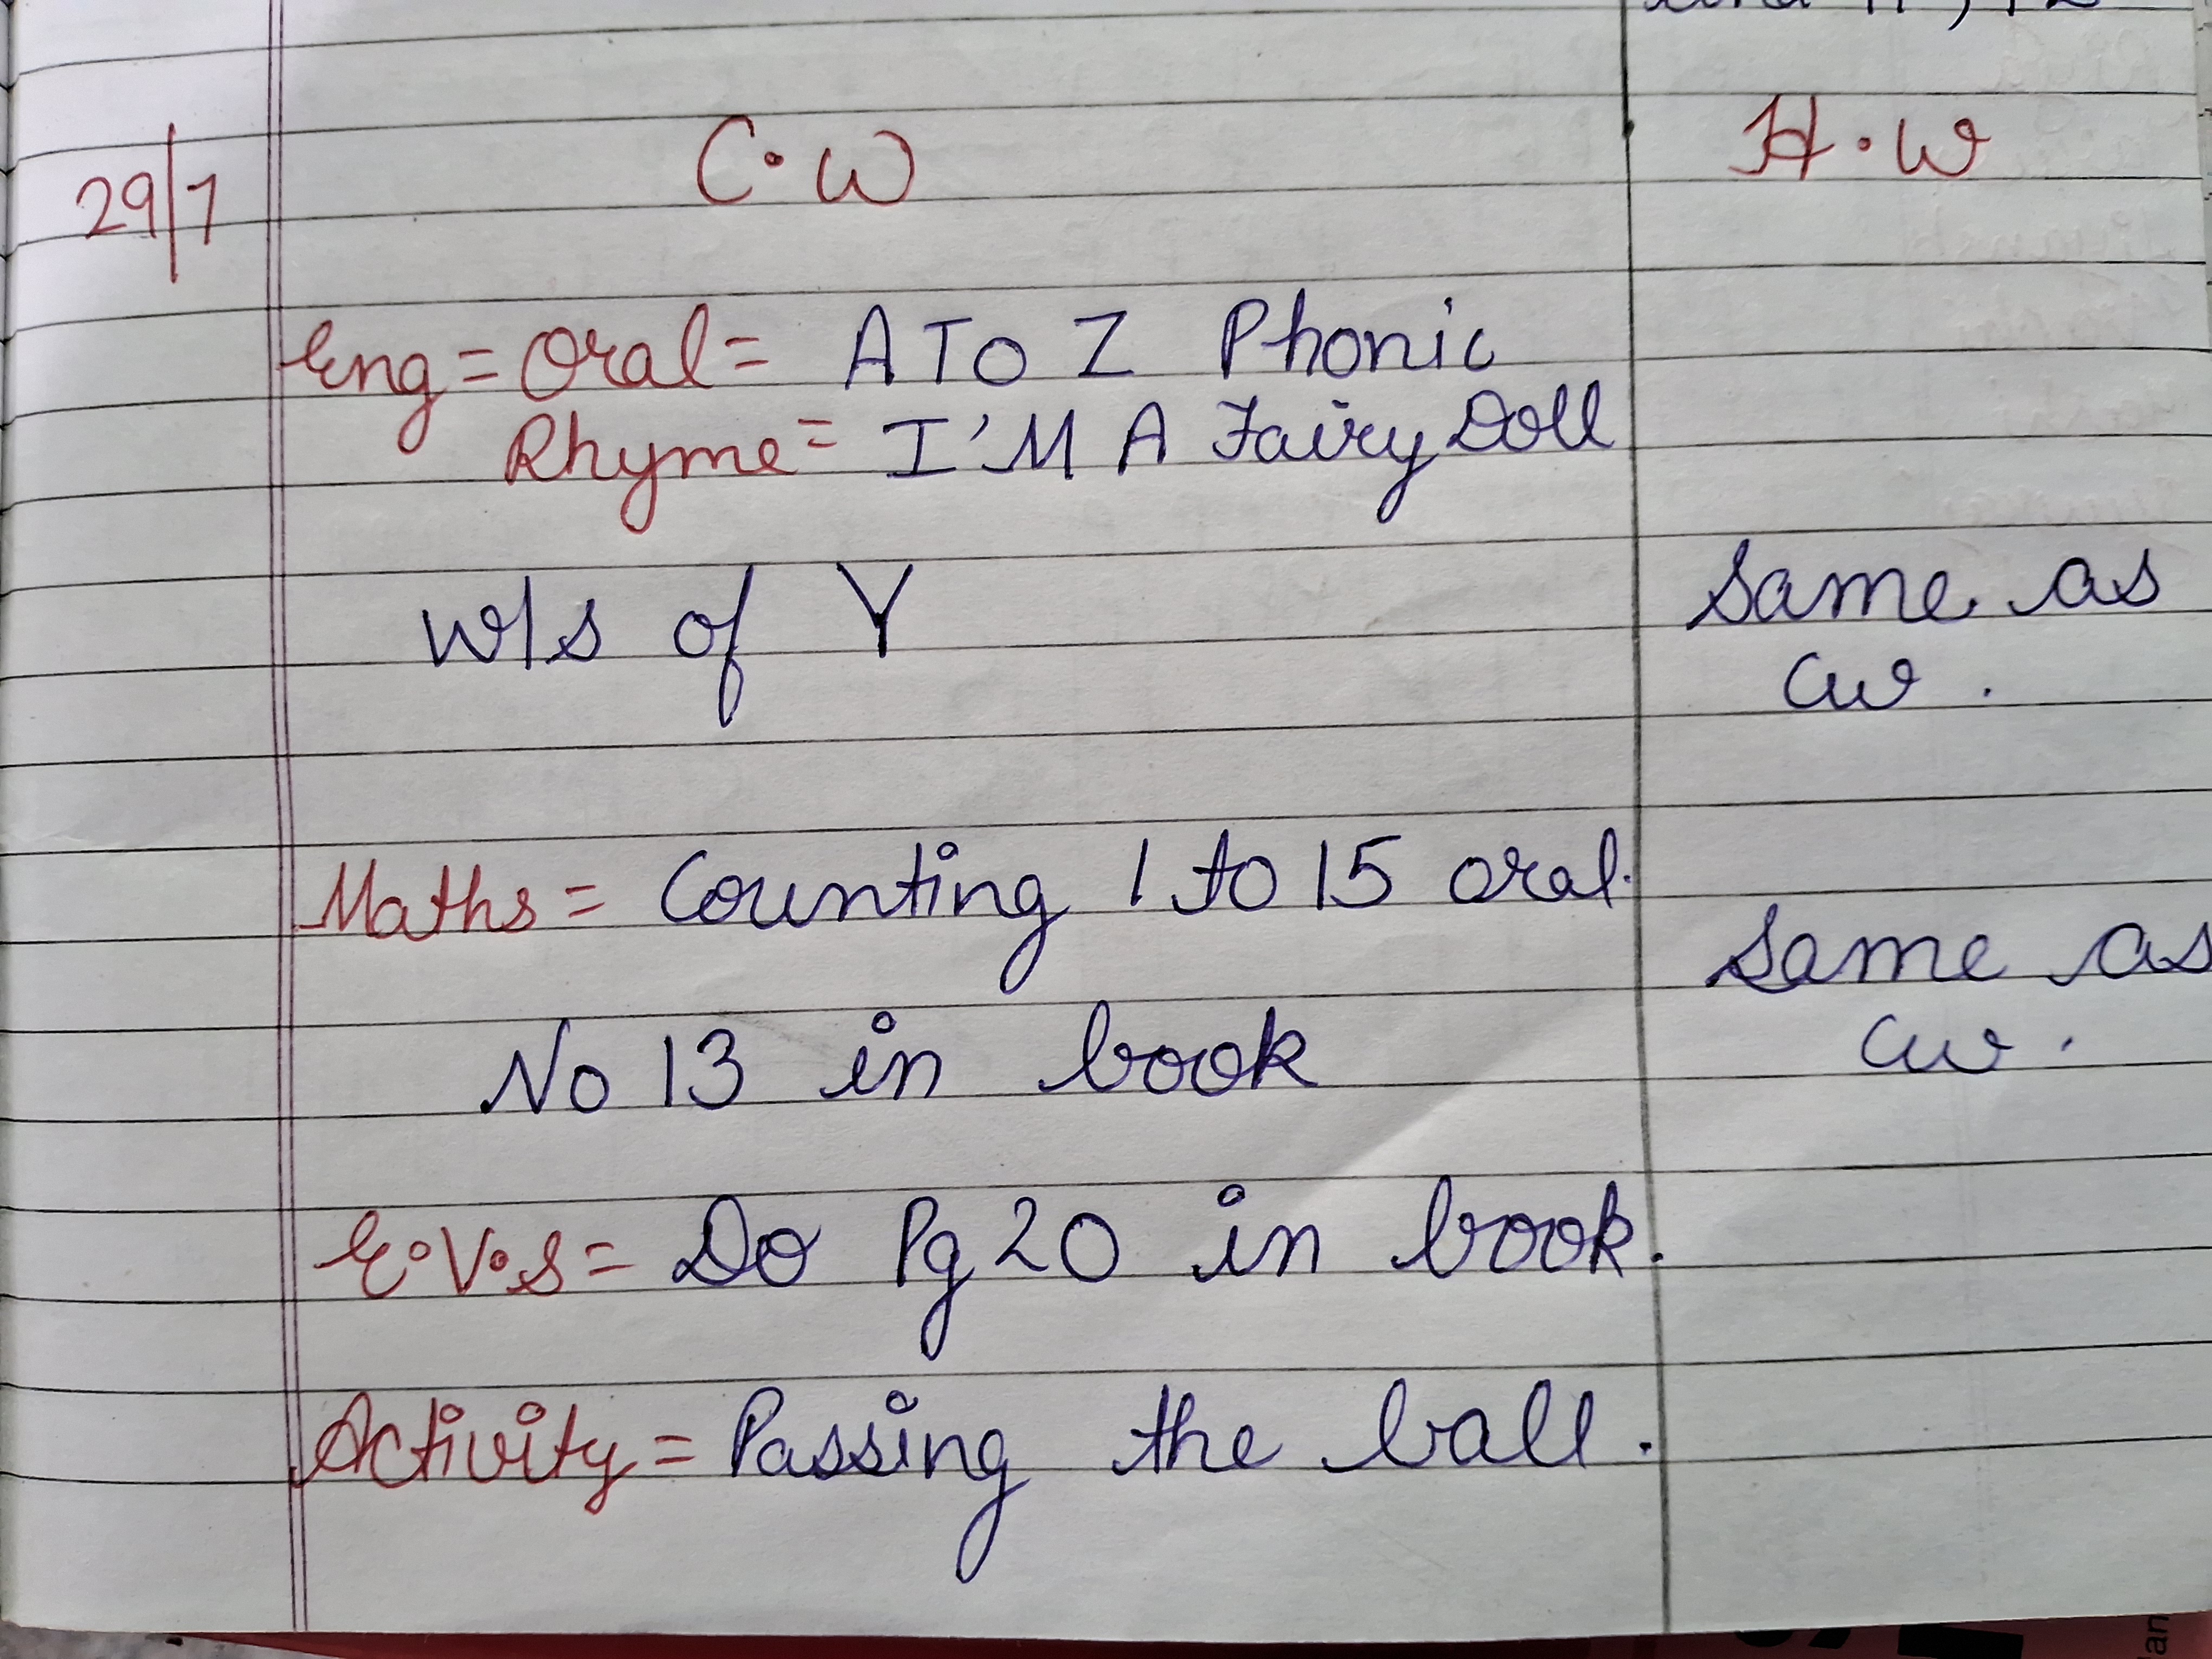 29/7 C.W H.W
Eng = Oral = A To Z Phonic
Rhyme = I'M A Fairy Doll
W/s of Y Same as
cw.
Maths = Counting 1 to 15 oral.
Same as
No 13 in book cw.
E.V.S = Do Pg 20 in book.
Activity = Passing the ball.